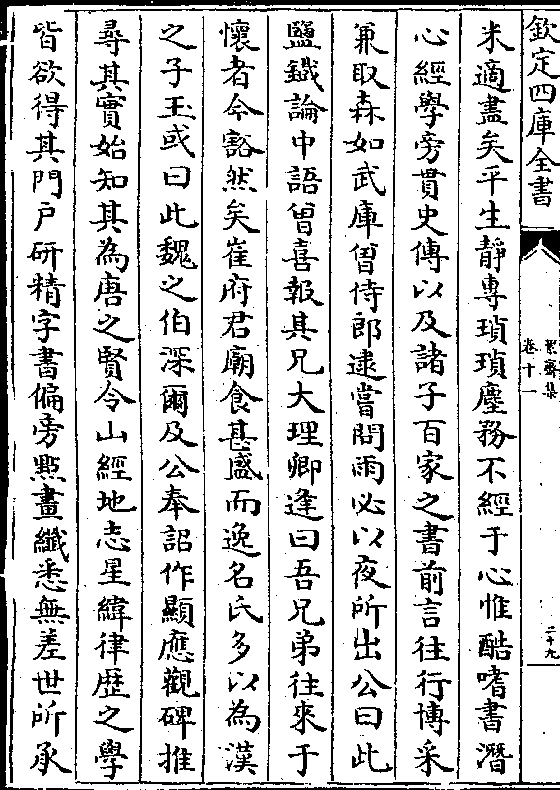 欽定四庫全書
絜齋集
卷十一
二十九
米適盡矣平生靜專瑣瑣塵務不經于心惟酷嗜書潛
心經學旁貫史傳以及諸子百家之書前言往行博采
兼取森如武庫曾侍郎逮嘗問雨必以夜所出公曰此
鹽鐵論中語曾喜報其兄大理卿逢曰吾兄弟往來于
懷者今豁然矣崔府君廟食甚盛而逸名氏多以為漢
之子玉或曰此魏之伯深爾及公奉詔作顯應觀碑推
尋其實始知其為唐之賢令山經地志星緯律歴之學
皆欲得其門戶研精字書偏旁點畫纖悉無差世所承